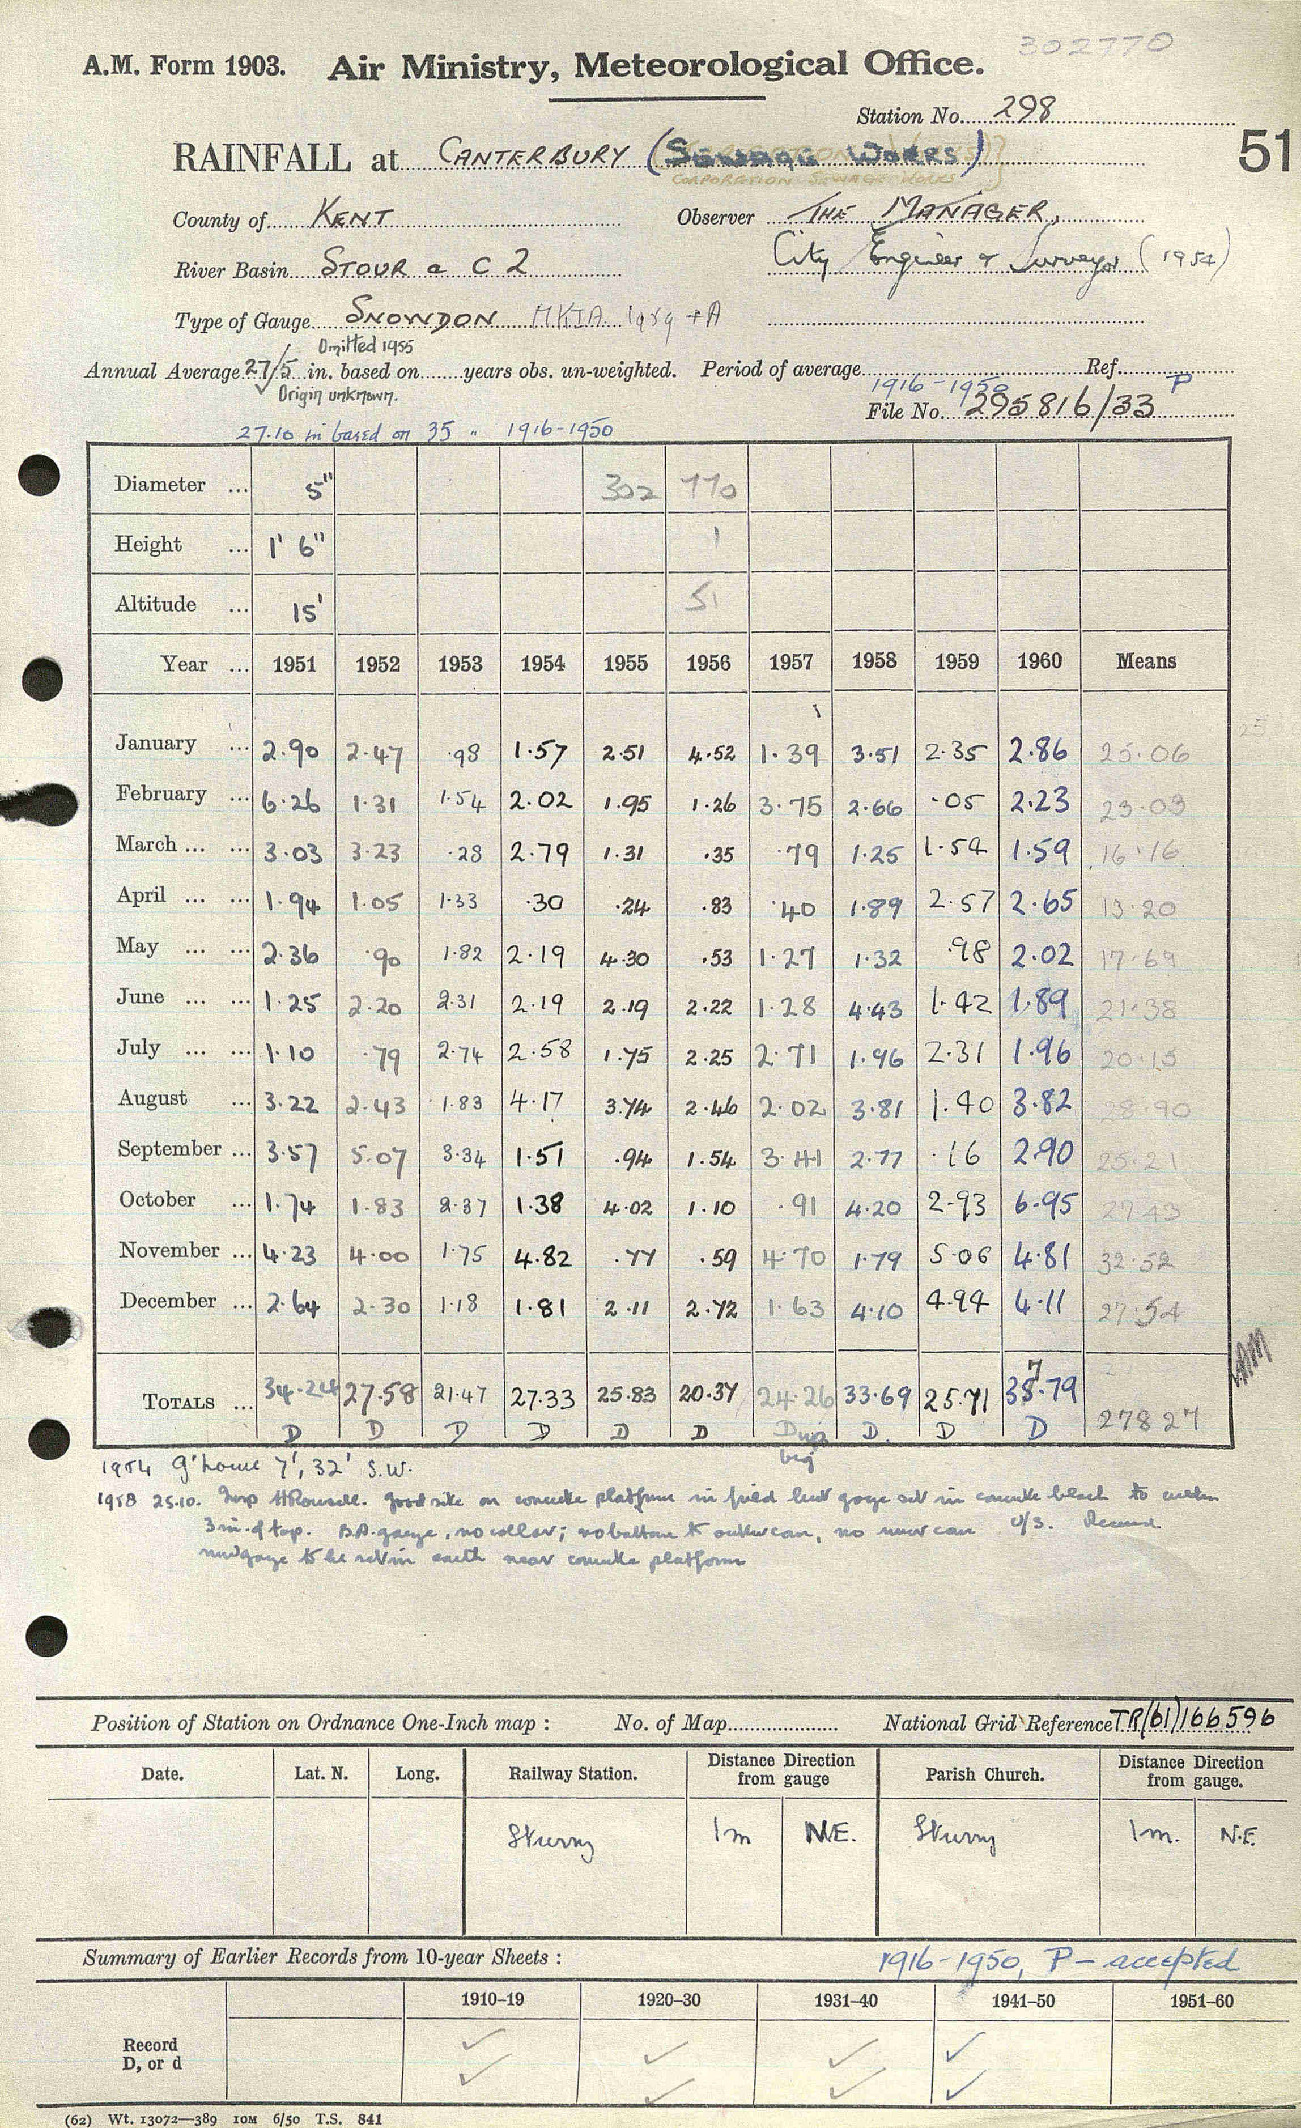 302770
A.M. Form 1903. Air Ministry, Meteorological Office.
Station No. 298
RAINFALL at CANTERBURY (SEWAGE WORKS)
CORPORATION SEWAGE WORKS
51
County of KENT Observer THE MANAGER,
River Basin STOUR a C 2 City Engineer & Surveyor (1954)
Type of Gauge SNOWDON
Omitted 1955
Annual Average 27/5 in. based on ...... years obs. un-weighted. Period of average 1916-1950 Ref. P
Origin unknown.
File No. 295816/33
27.10 in based on 35 " 1916-1950
Diameter ... 5" 302 770
Height ... 1' 6" 1
Altitude ... 15' 51
Year ... 1951 1952 1953 1954 1955 1956 1957 1958 1959 1960 Means
January ... 2.90 2.47 .98 1.57 2.51 4.52 1.39 3.51 2.35 2.86 25.06
February ... 6.26 1.31 1.54 2.02 1.95 1.26 3.75 2.66 .05 2.23 23.03
March ... ... 3.03 3.23 .28 2.79 1.31 .35 .79 1.25 1.54 1.59 16.16
April ... ... 1.94 1.05 1.33 .30 .24 .83 .40 1.89 2.57 2.65 13.20
May ... ... 2.36 .90 1.82 2.19 4.30 .53 1.27 1.32 .98 2.02 17.69
June ... ... 1.25 2.20 2.31 2.19 2.19 2.22 1.28 4.43 1.42 1.89 21.38
July ... ... 1.10 .79 2.74 2.58 1.75 2.25 2.71 1.96 2.31 1.96 20.15
August ... 3.22 2.43 1.83 4.17 3.74 2.46 2.02 3.81 1.40 3.82 28.90
September ... 3.57 5.07 3.34 1.51 .94 1.54 3.41 2.77 .16 2.90 25.21
October ... 1.74 1.83 2.37 1.38 4.02 1.10 .91 4.20 2.93 6.95 27.43
November ... 4.23 4.00 1.75 4.82 .77 .59 4.70 1.79 5.06 4.81 32.52
December ... 2.64 2.30 1.18 1.81 2.11 2.72 1.63 4.10 4.94 4.11 27.54
7
TOTALS ... 34.24 27.58 21.47 27.33 25.83 20.37 24.26 33.69 25.71 38.79 278 27
D D D D D D D D. D D
1954 g'house 7', 32' S.W.
1958 25.10. Insp H Rowsell. Good site on concrete platform in field but gauge set in concrete block to within
3 in. of top. B.A. gauge, no collar; no bottom to outer can, no inner can U/S. Recomd
new gauge to be set in earth near concrete platform
Position of Station on Ordnance One-Inch map : No. of Map National Grid Reference TR(61)166596
Date. Lat. N. Long. Railway Station. Distance Direction from gauge Parish Church. Distance Direction from gauge.
Sturry 1m N.E. Sturry 1m. N.E.
Summary of Earlier Records from 10-year Sheets : 1916-1950, P - accepted
1910–19 1920–30 1931–40 1941–50 1951–60
Record ✓ ✓ ✓ ✓
D, or d ✓ ✓ ✓ ✓
(62) Wt. 13072—389 10M 6/50 T.S. 841